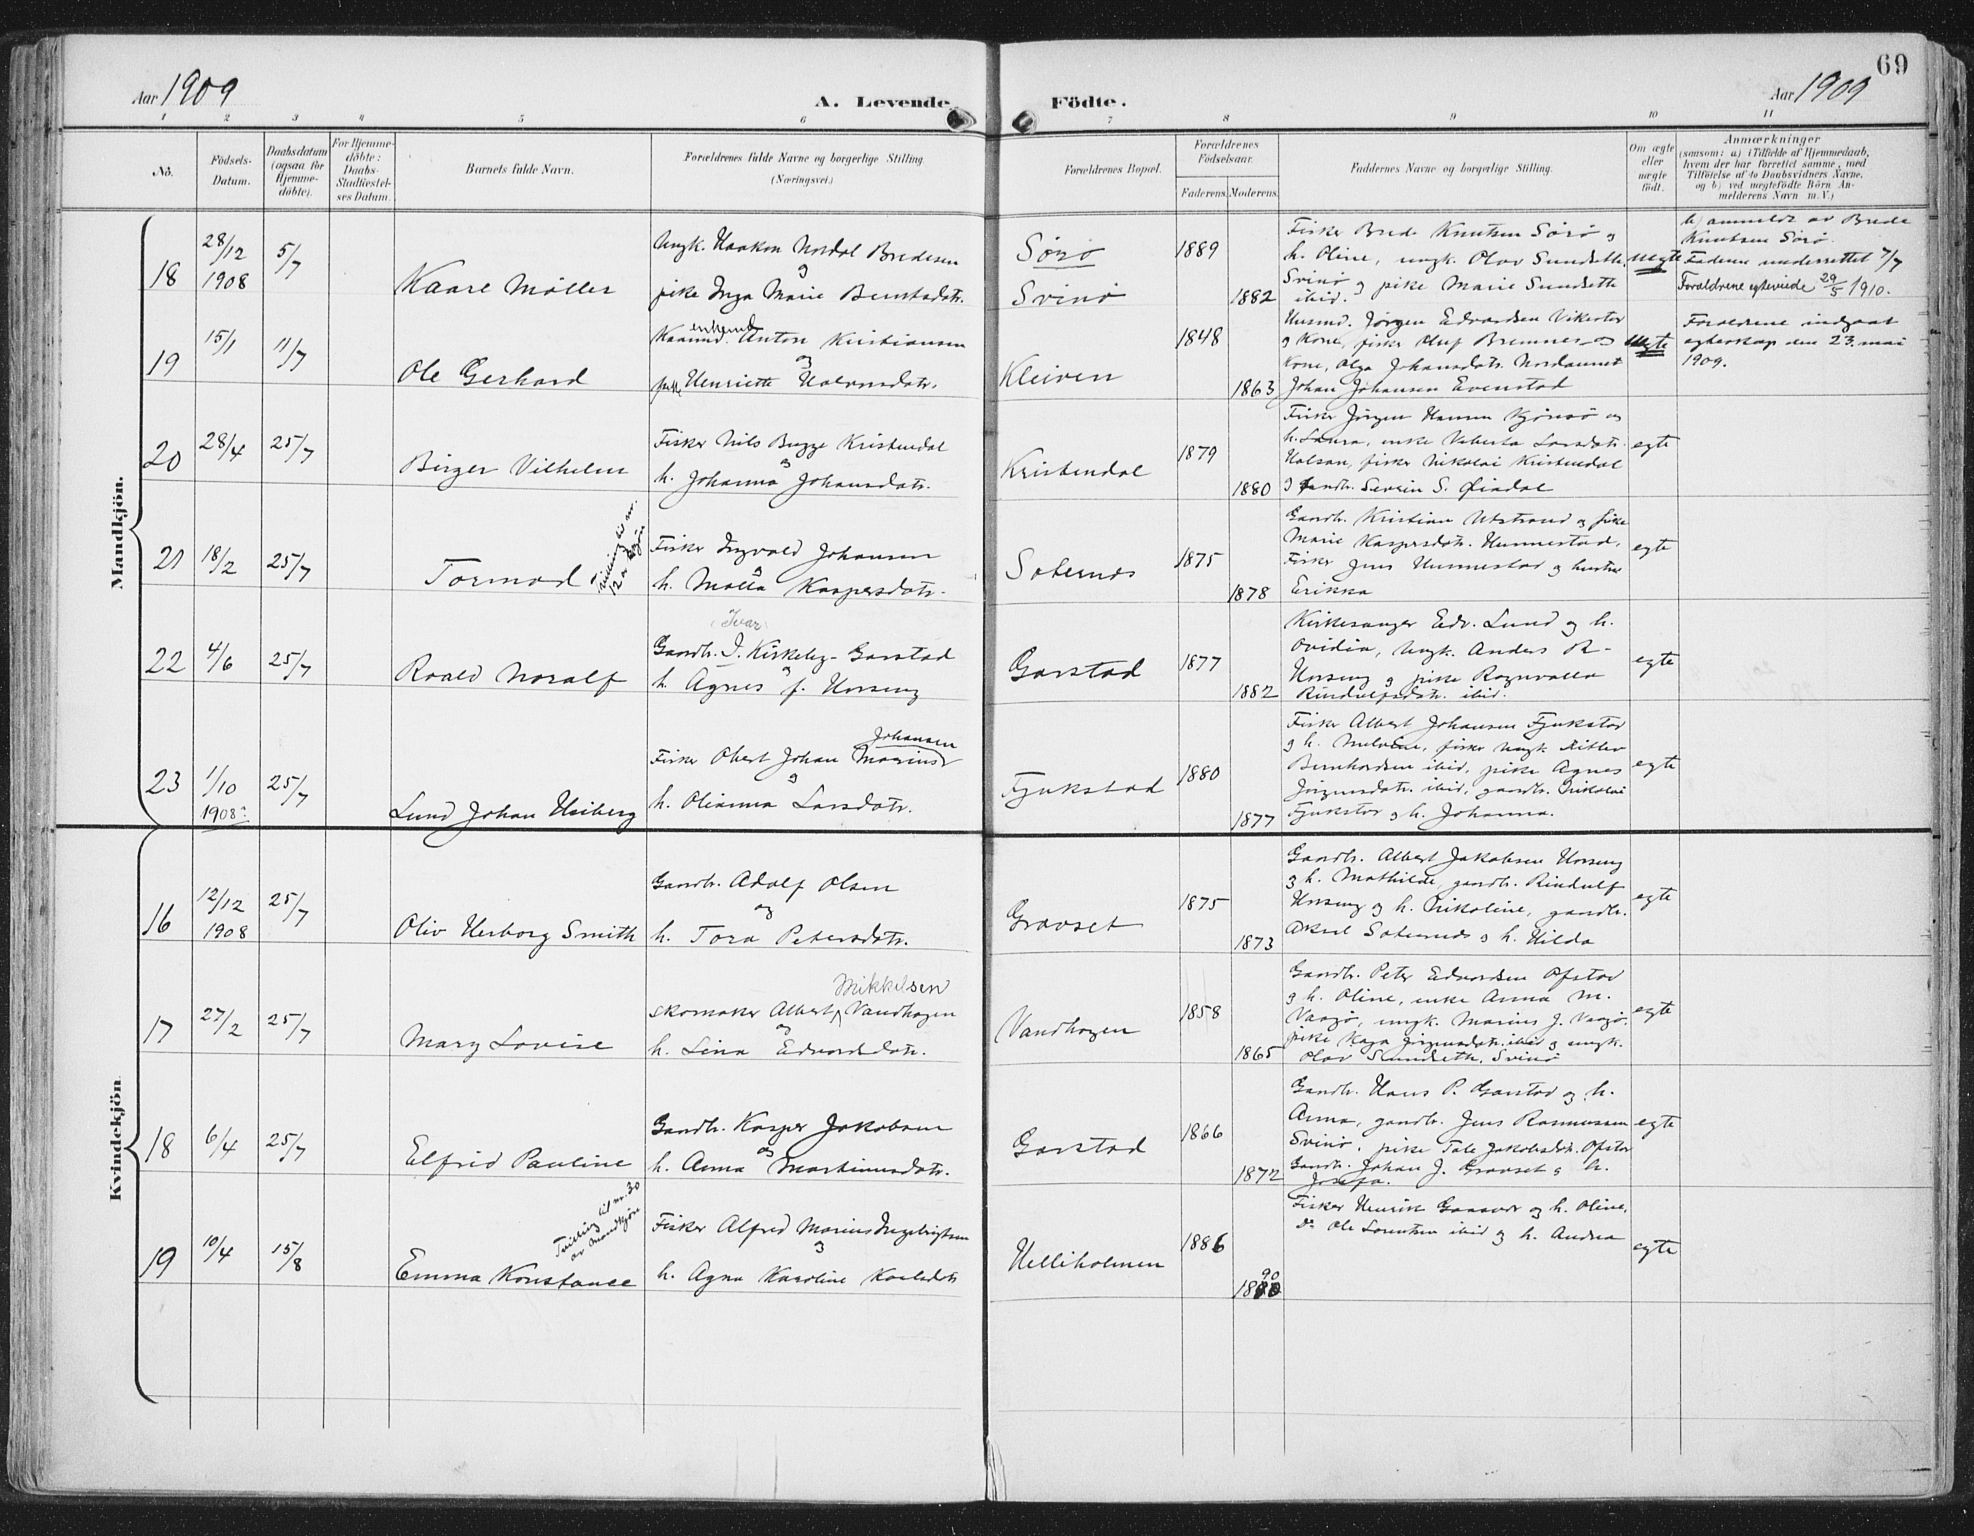 69
Aar 1909
A. Levende
Födte.
Aar 1909
1 2 3 4 5 6 7 8 9 10 11
No.
Födsels-
Datum.
Daabsdatum
(ogsaa for
Hjemme-
döbte).
For Hjemme-
döbte:
Daabs-
Stadfæstel-
ses Datum.
Barnets fulde Navn.
Forældrenes fulde Navne og borgerlige Stilling.
(Næringsvei.)
Forældrenes Bopæl.
Forældrenes
Födselsaar.
Faderens. Moderens.
Faddernes Navne og borgerlige Stilling.
Om ægte
eller
uægte
födt.
Anmærkninger
(saasom: a) i Tilfælde af Hjemmedaab,
hvem der har forrettet samme, med
Tilföielse af to Daabsvidners Navne,
og b) ved uægtefödte Börn An-
melderens Navn m. V.)
Mandkjön.
18
28/12
1908
5/7
Kaare Møller
Ungk. Haakon Nordal Bredesen
og
pike Inga Marie Berntsdatr.
Sørø
Svinø
1889
1882
Fisker Brede Knutsen Sørø og
h. Oline, ungk. Olav Sundseth
Svinø og pike Marie Sundseth
ibid.
uegte
b) anmeldt av Brede
Knutsen Sørø.
Faderen underrettet 7/7
Forældrene egteviede 29/5 1910.
19
15/1
11/7
Ole Gerhard
enkemd.
Kaarmd. Anton Kristiansen
og
Henriette Halvorsdatr.
Kleiven
1848
1863
Husmd. Jørgen Edvardsen Vikestor
og Kone, fisker Oluf Bremnes og
Kone, Olga Johansdatr. Nordannet
Johan Johansen Evenstad
uegte
Forældrene indgaat
egteskap den 23. mai
1909.
20
28/4
25/7
Birger Vilhelm
Fisker Nils Bugge Kristendal
og
h. Johanna Johansdatr.
Kristendal
1879
1880
Fisker Jørgen Hansen og
h. Laura, enke Larsdatr.
fisker Nikolai Kristendal
og Severin S. Øiadal
egte
21
18/2
25/7
Tormod
Tvilling til nr.
12 av
Fisker Ingvald Johansen
og
h. Molla Kaspersdatr.
Soternes
1875
1878
Gaardb. Kristian Utstrand og pike
Marie Kaspersdatr. Hunnestad,
Fisker Jens Hunnestad og hustru
Erikka
egte
22
4/6
25/7
Roald Noralf
(Ivar)
Gaardb. I. Kirkeby-Garstad
og
h. Agnes f. Horseng
Garstad
1877
1882
Kirkesanger Edv. Lund og h.
Ovidia, ungk. Anders R-
Horseng og pike Ragnvalla
Rindulfsdatr. ibid.
egte
23
1/10
1908
25/7
Lund Johan Heiberg
Johansen
Fisker Obert Johan Marius
og
h. Olianna Larsdatr.
Fjukstad
1880
1877
Fisker Albert Johansen Fjukstad
og h. fisker ungk. Ditlev
Bernhardsen ibid, pike Agnes
Jørgensdatr. ibid, gaardb. Nikolai
Fjukstad og h. Johanna.
egte
Kvindekjön
16
12/12
1908
25/7
Oliv Herborg Smith
Gaardb. Adolf Olsen
og
h. Tora Petersdatr.
Gravset
1875
1873
Gaardb. Albert Jakobsen Horseng
og h. Mathilde, gaardb. Rindulf
Horseng og h. Nikoline, gaardb.
Aksel Soternes og h. Hilda
egte
17
27/2
25/7
Mary Lovise
Mikkelsen
Skomaker Albert Vandhagen
og
h. Lina Edvardsdatr.
Vandhagen
1858
1865
Gaardb. Peter Edvardsen Ofstad
og h. Oline, enke Anna M.
Vaagø, ungk. Marius J. Vaagø,
pike Kaja Jørgensdatr. ibid og ungk.
Olav Sundseth, Svinø
egte
18
6/4
25/7
Elfrid Pauline
Gaardb. Kasper Jakobsen
og
h. Anna Martinusdatr.
Garstad
1866
1872
Gaardb. Hans P. Garstad og h.
Anna, gaardb. Jens Rasmussen
Svinø, pike Tale Jakobsdatr. Ofstad
Gaardb. Johan J. Gravset og h.
Josefa.
egte
19
10/4
15/8
Emma Konstance
Tvilling til nr. 30
av Mandkjøn
Fisker Alfred Marius Ingebrigtsen
og
h. Agna Karoline Karlsdatr
Helliholmen
1886
90
Fisker Henrik og h. Oline,
Do Ole Lorentsen ibid og h. Andrea
egte